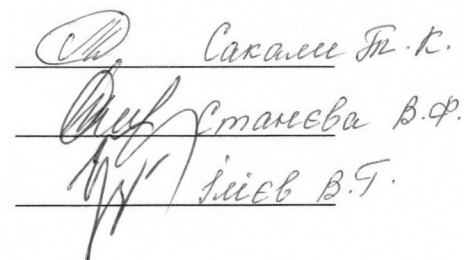 Сакали Т. К.
Станєва В.Ф.
Ілієв В.Г.